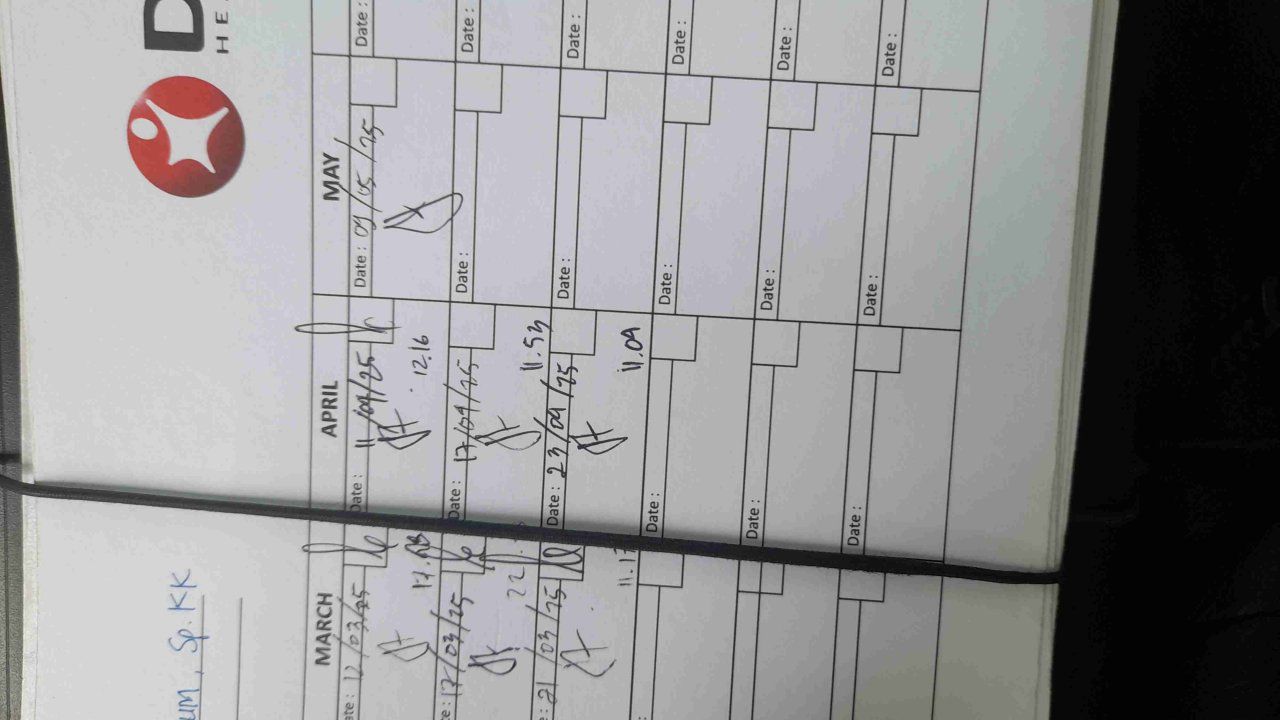 D
HE
UM, Sp.KK
MARCH
APRIL
MAY
ate: 12/03/25
Date: 11/04/25
Date: 09/05/25
Date:
12.16
e: 17/03/25
Date: 17/04/25
Date:
Date:
11.53
e: 21/03/25
Date: 23/04/25
Date:
Date:
11.17
11.09
:
Date:
Date:
Date:
Date:
Date:
Date:
Date:
Date:
Date: